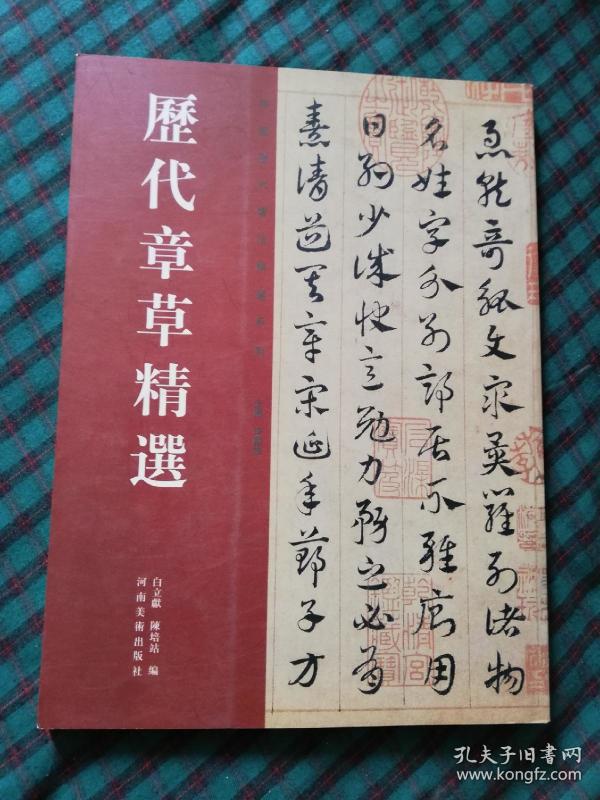 歷代章草精選
白立獻 陳培站 編
河南美術出版社
急就奇觚與眾異羅列諸物
名姓字分別部居不雜廁用
日約少誠快意勉力務之必有
憙請道其章宋延年鄭子方
孔夫子旧书网
www.kongfz.com